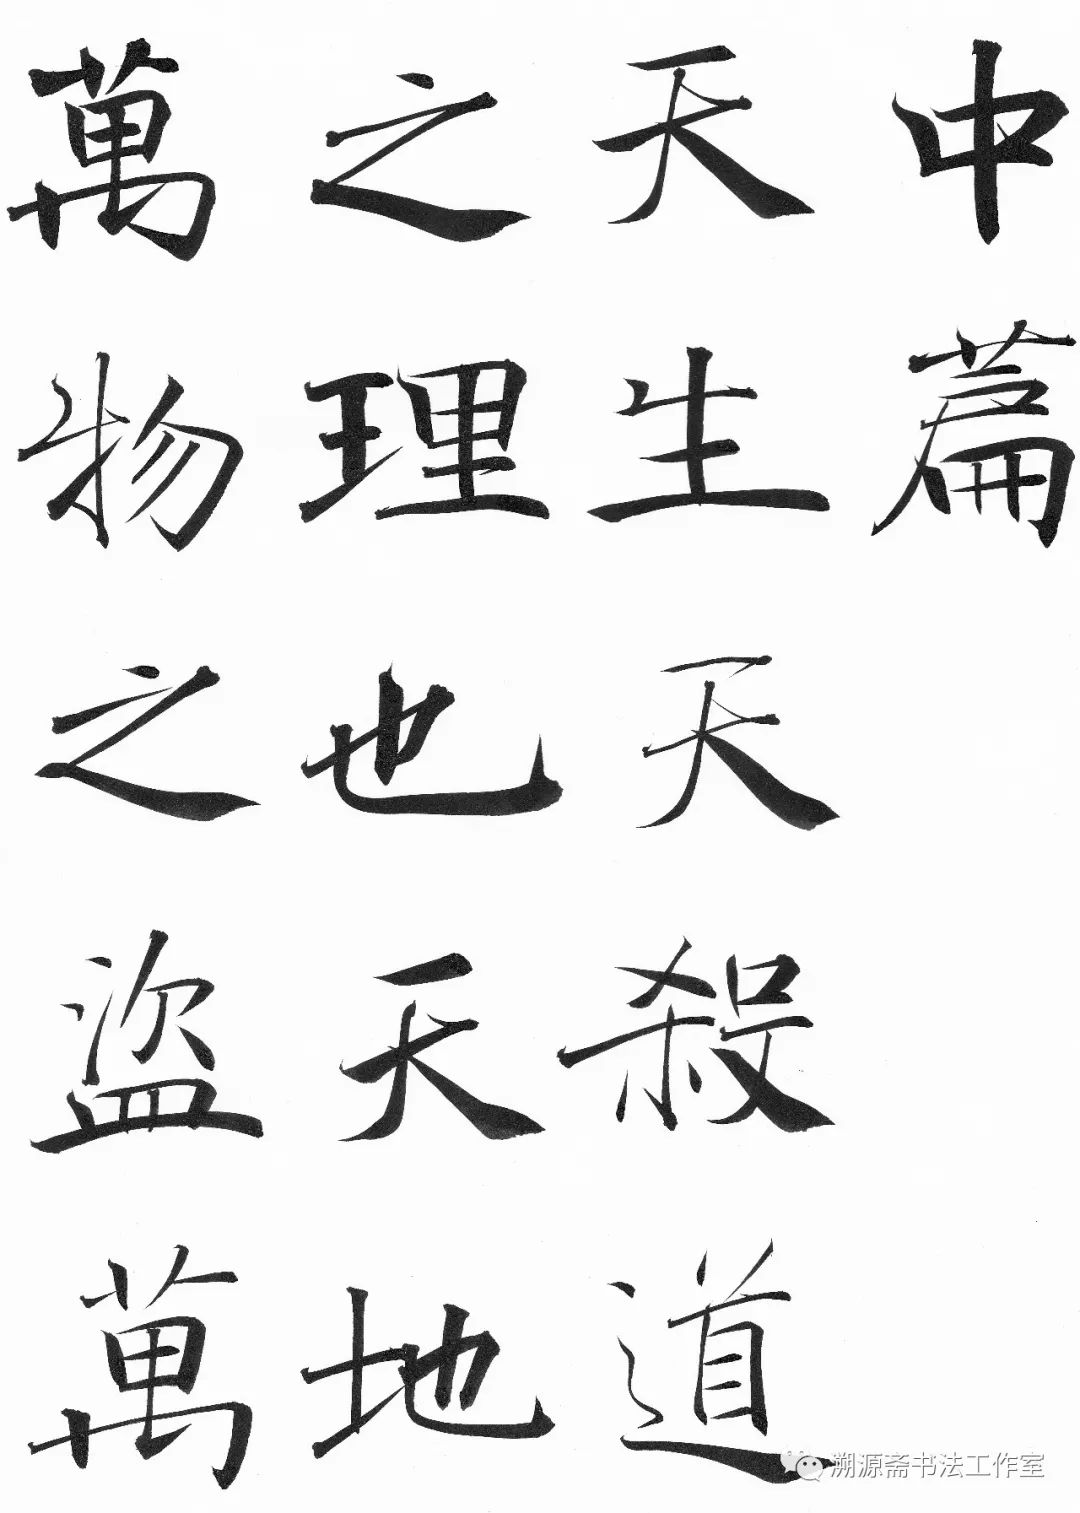 中篇
天生天殺道
之理也天地
萬物之盜萬
溯源斋书法工作室